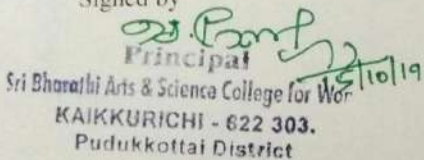 Signed by
15/10/19
Principal
Sri Bharathi Arts & Science College for Wom
KAIKKURICHI - 622 303.
Pudukkottai District